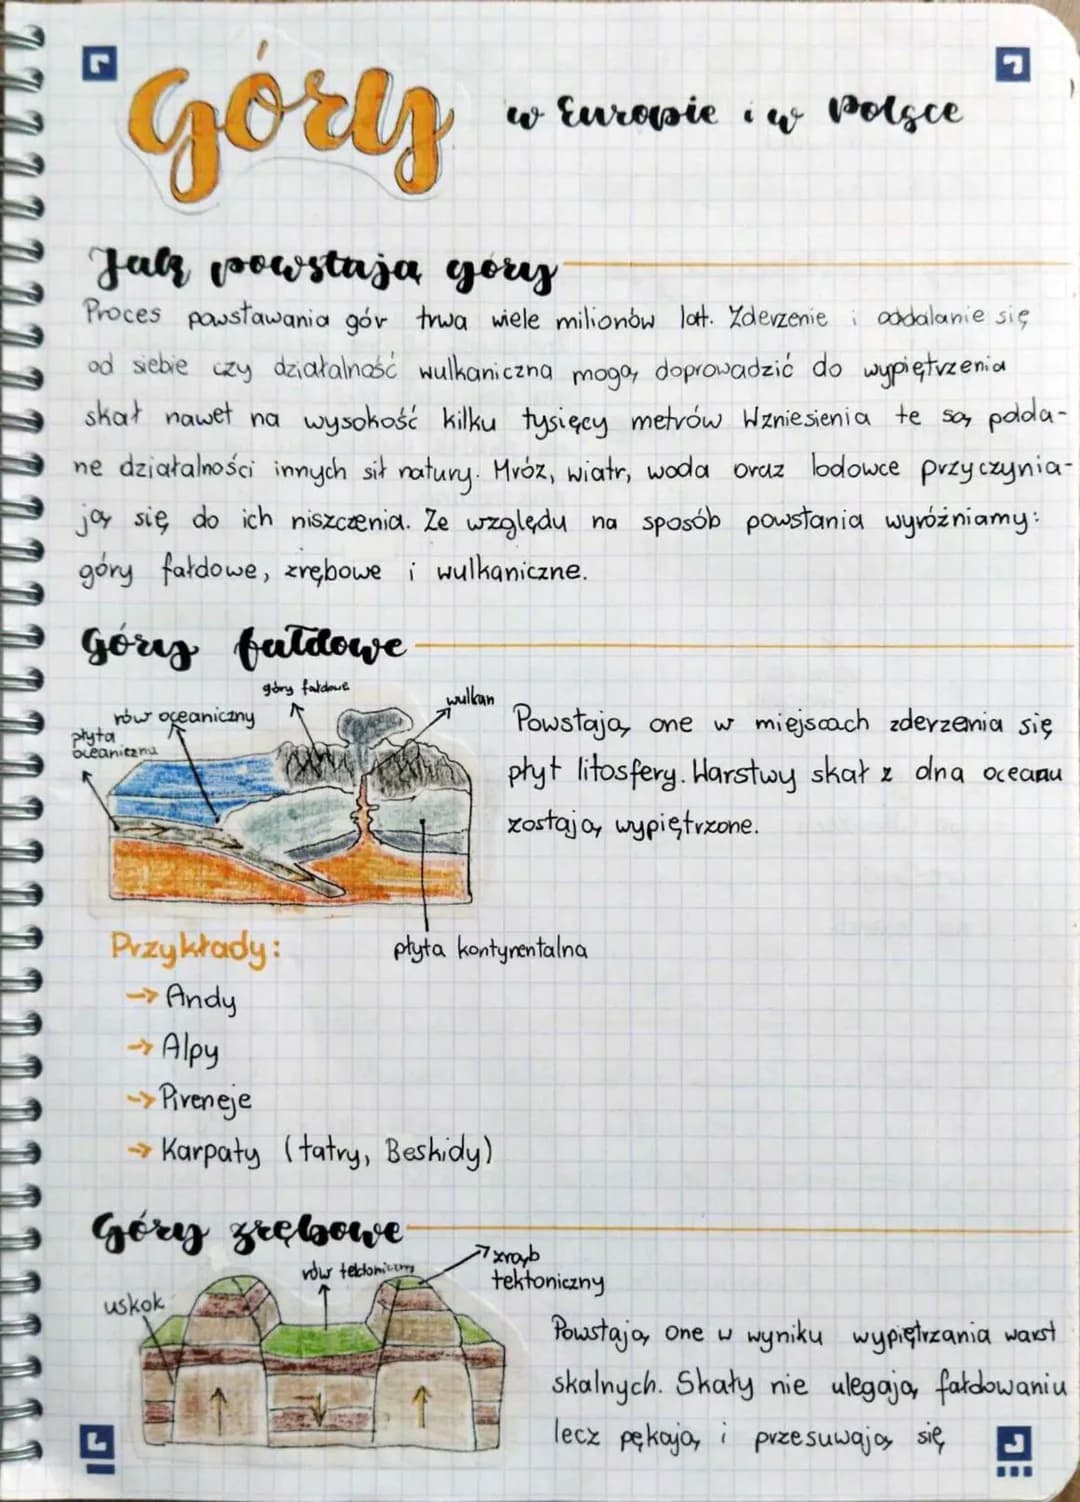 Góry w Europie i w Polsce
Jak powstają góry
Proces powstawania gór trwa wiele milionów lat. Zderzenie i oddalanie się
od siebie czy działalność wulkaniczna mogą doprowadzić do wypiętrzenia
skał nawet na wysokość kilku tysięcy metrów Wzniesienia te są podda-
ne działalności innych sił natury. Mróz, wiatr, woda oraz lodowce przyczynia-
ją się do ich niszczenia. Ze względu na sposób powstania wyróżniamy:
góry fałdowe, zrębowe i wulkaniczne.
Góry fałdowe
góry fałdowe
wulkan
rów oceaniczny
płyta
oceaniczna
płyta kontynentalna
Powstają one w miejscach zderzenia się
płyt litosfery. Warstwy skał z dna oceanu
zostają wypiętrzone.
Przykłady:
→ Andy
→ Alpy
→ Pireneje
→ Karpaty (tatry, Beskidy)
Góry zrębowe
uskok
rów tektoniczny
zrąb
tektoniczny
Powstają one w wyniku wypiętrzania warst
skalnych. Skały nie ulegają fałdowaniu
lecz pękają i przesuwają się